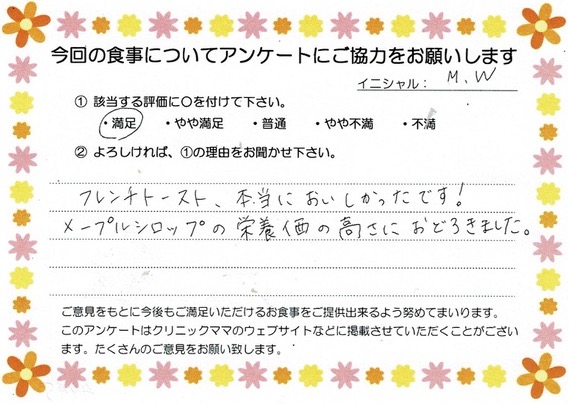 今回の食事についてアンケートにご協力をお願いします
イニシャル： M.W
① 該当する評価に○を付けて下さい。
・満足 ・やや満足 ・普通 ・やや不満 ・不満
② よろしければ、①の理由をお聞かせ下さい。
フレンチトースト、本当においしかったです！
メープルシロップの栄養価の高さにおどろきました。
ご意見をもとに今後もご満足いただけるお食事をご提供出来るよう努めてまいります。
このアンケートはクリニックママのウェブサイトなどに掲載させていただくことがござい
ます。たくさんのご意見をお願い致します。